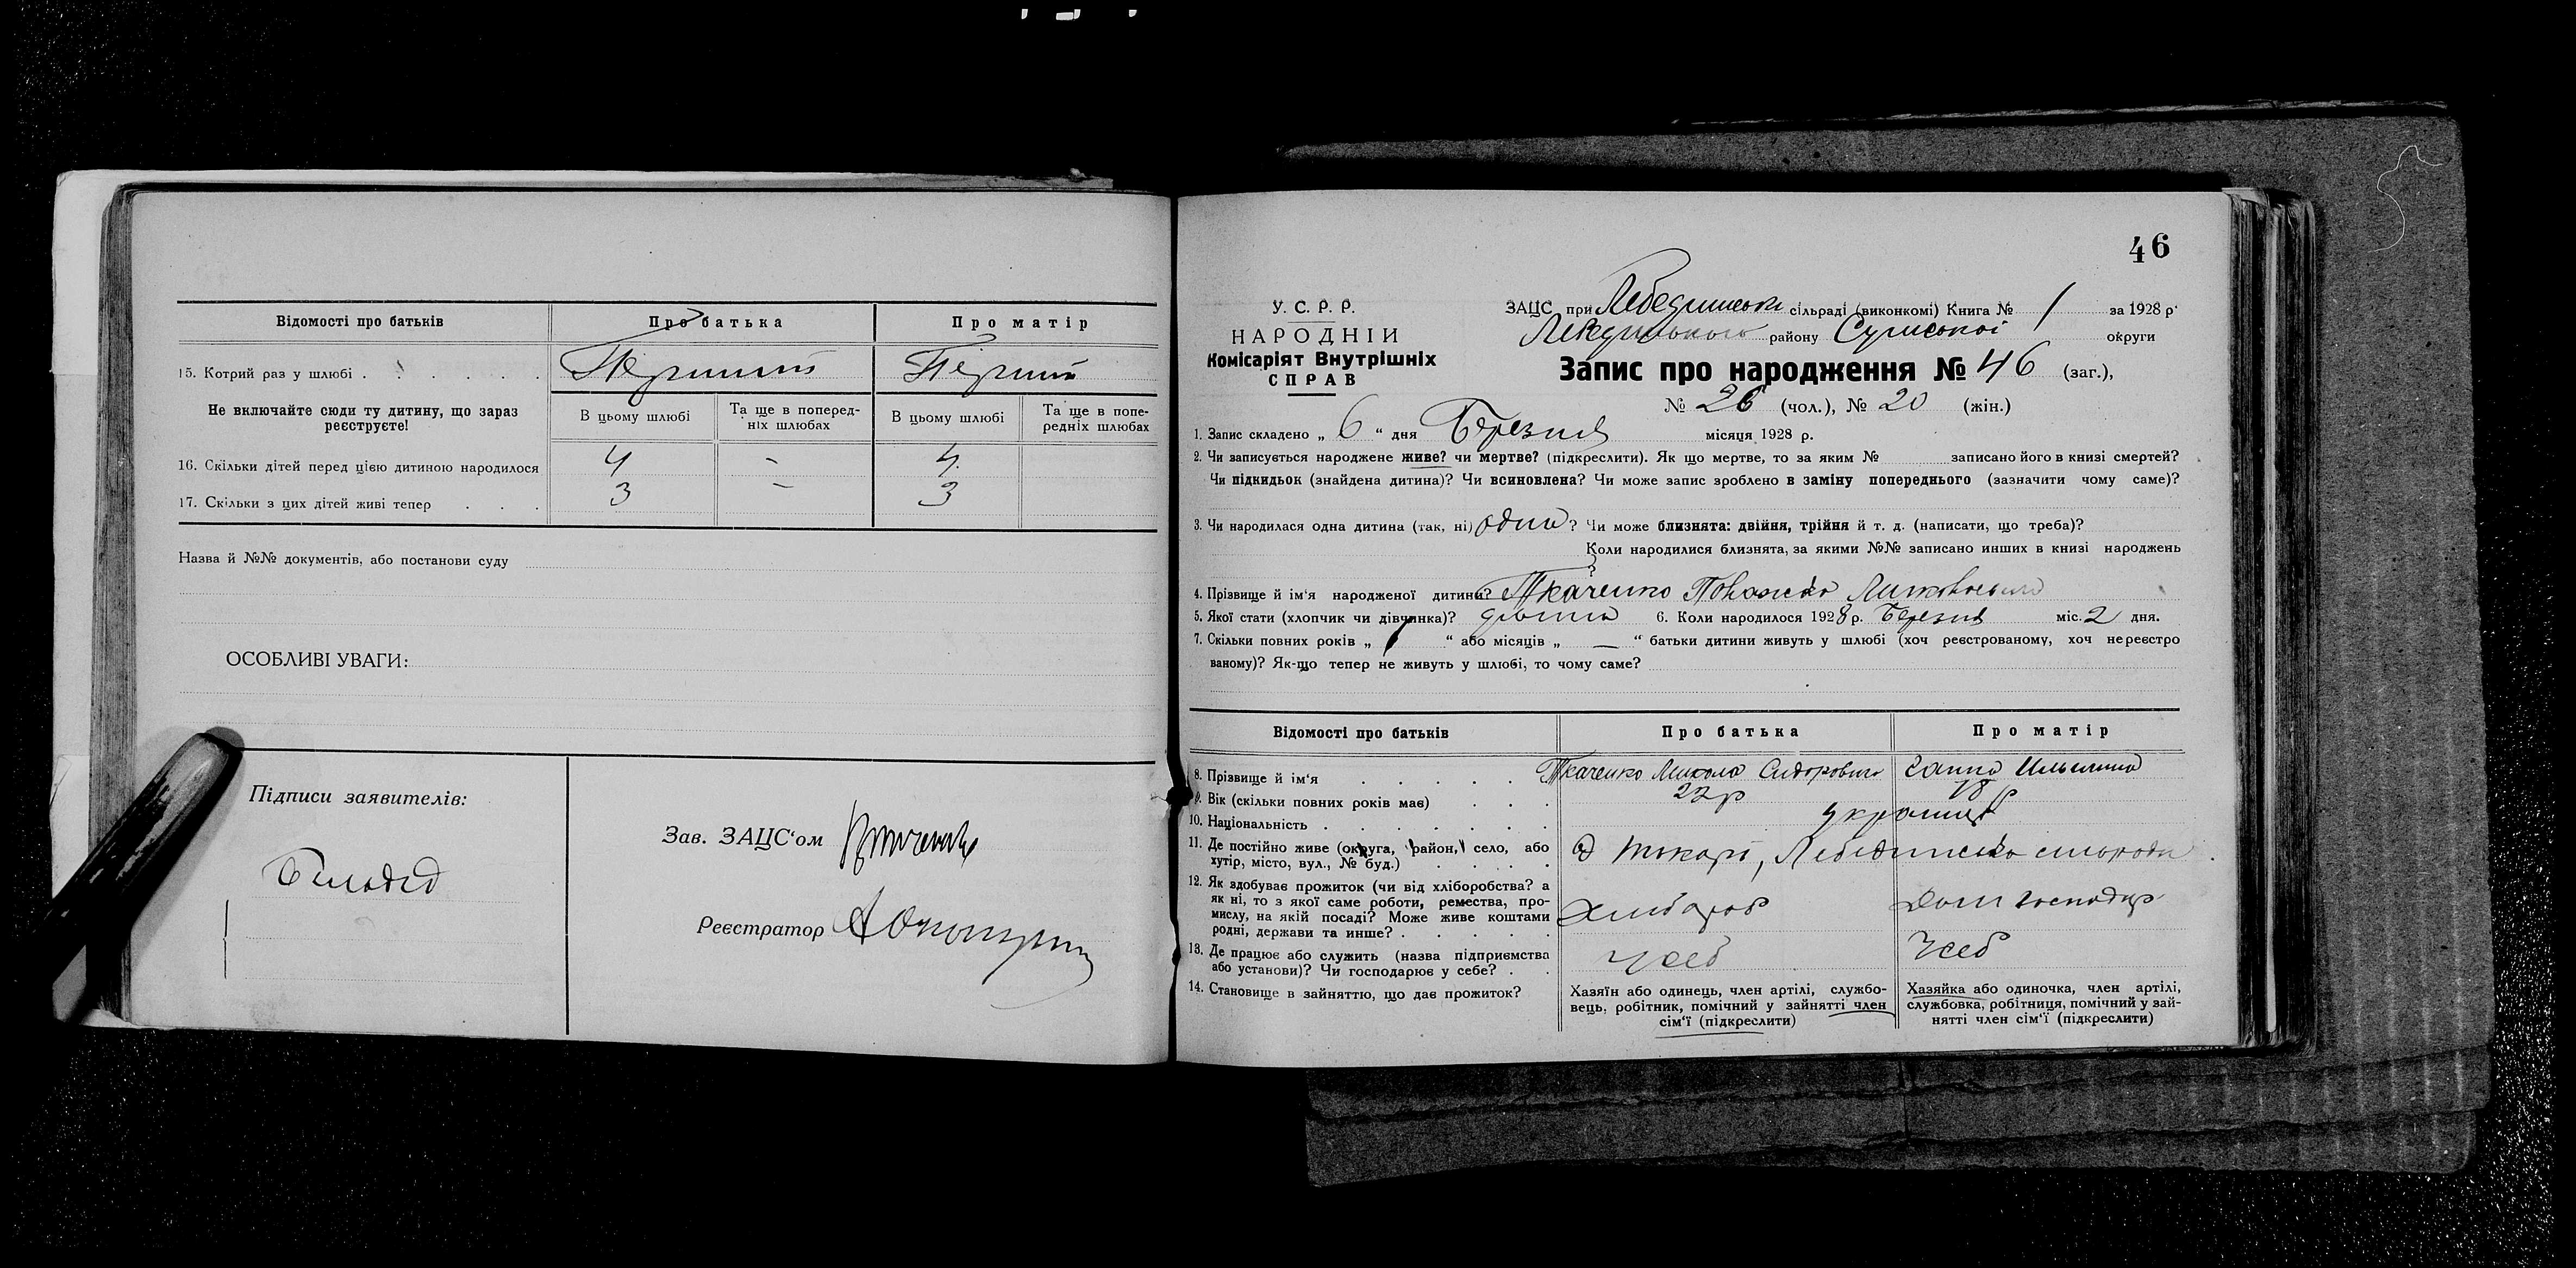 Відомості про батьків
Про батька
Про матір
15. Котрий раз у шлюбі . . . . . .
Перший
Перший
Не включайте сюди ту дитину, що зараз реєструєте!
В цьому шлюбі
Та ще в поперед-
ніх шлюбах
В цьому шлюбі
Та ще в попе-
редніх шлюбах
16. Скільки дітей перед цією дитиною народилося
4 - 4
17. Скільки з цих дітей живі тепер . . .
3 - 3
Назва й №№ документів, або постанови суду
ОСОБЛИВІ УВАГИ:
Підписи заявителів:
Зав. ЗАЦС'ом
Реєстратор
46
У. С. Р. Р.
НАРОДНІЙ
Комісаріят Внутрішніх
СПРАВ
ЗАЦС при Лебединській сільраді (виконкомі) Книга № 1 за 1928 р.
Лебединського району Сумської округи
Запис про народження № 46 (заг.),
№ 26 (чол.), № 20 (жін.)
1. Запис складено „ 6 “ дня Березня місяця 1928 р.
2. Чи записується народжене живе? чи мертве? (підкреслити). Як що мертве, то за яким № записано його в книзі смертей?
Чи підкидьок (знайдена дитина)? Чи всиновлена? Чи може запис зроблено в заміну попереднього (зазначити чому саме)?
3. Чи народилася одна дитина (так, ні) одна ? Чи може близнята: двійня, трійня й т. д. (написати, що треба)?
Коли народилися близнята, за якими №№ записано инших в книзі народжень
?
4. Прізвище й ім'я народженої дитини? Ткаченко
5. Якої стати (хлопчик чи дівчинка)? 6. Коли народилося 1928 р. Березня міс. 2 дня.
7. Скільки повних років „ “ або місяців „ — “ батьки дитини живуть у шлюбі (хоч реєстрованому, хоч нереєстро
ваному)? Як-що тепер не живуть у шлюбі, то чому саме?
Відомості про батьків
Про батька
Про матір
8. Прізвище й ім'я . . . . .
Ткаченко Микола Сидорович
Ганна
9. Вік (скільки повних років має) . . .
22 р
10. Національність . . . . . . .
11. Де постійно живе (округа, район, село, або
хутір, місто, вул., № буд.) . . . .
Токарі, Лебединської сільради
12. Як здобуває прожиток (чи від хліборобства? а
як ні, то з якої саме роботи, ремества, про-
мислу, на якій посаді? Може живе коштами
родні, держави та инше? . . . . .
Хлібороб
Дом господар
13. Де працює або служить (назва підприємства
або установи)? Чи господарює у себе? . .
У себ
У себ
14. Становище в зайняттю, що дає прожиток?
Хазяїн або одинець, член артілі, службо-
вець, робітник, помічний у зайнятті член
сім'ї (підкреслити)
Хазяйка або одиночка, член артілі,
службовка, робітниця, помічний у зай-
нятті член сім'ї (підкреслити)